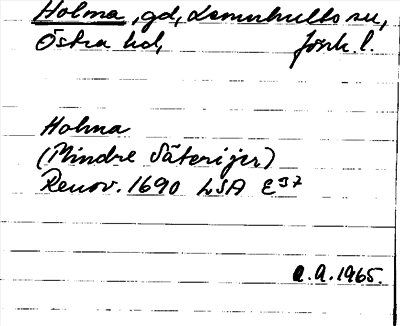 Holma, gd, Lemnhults sn,
Östra hd, Jönk. l.
Holma
(Mindre Säterijer)
Renov. 1690 LSA E97
A.A. 1965.